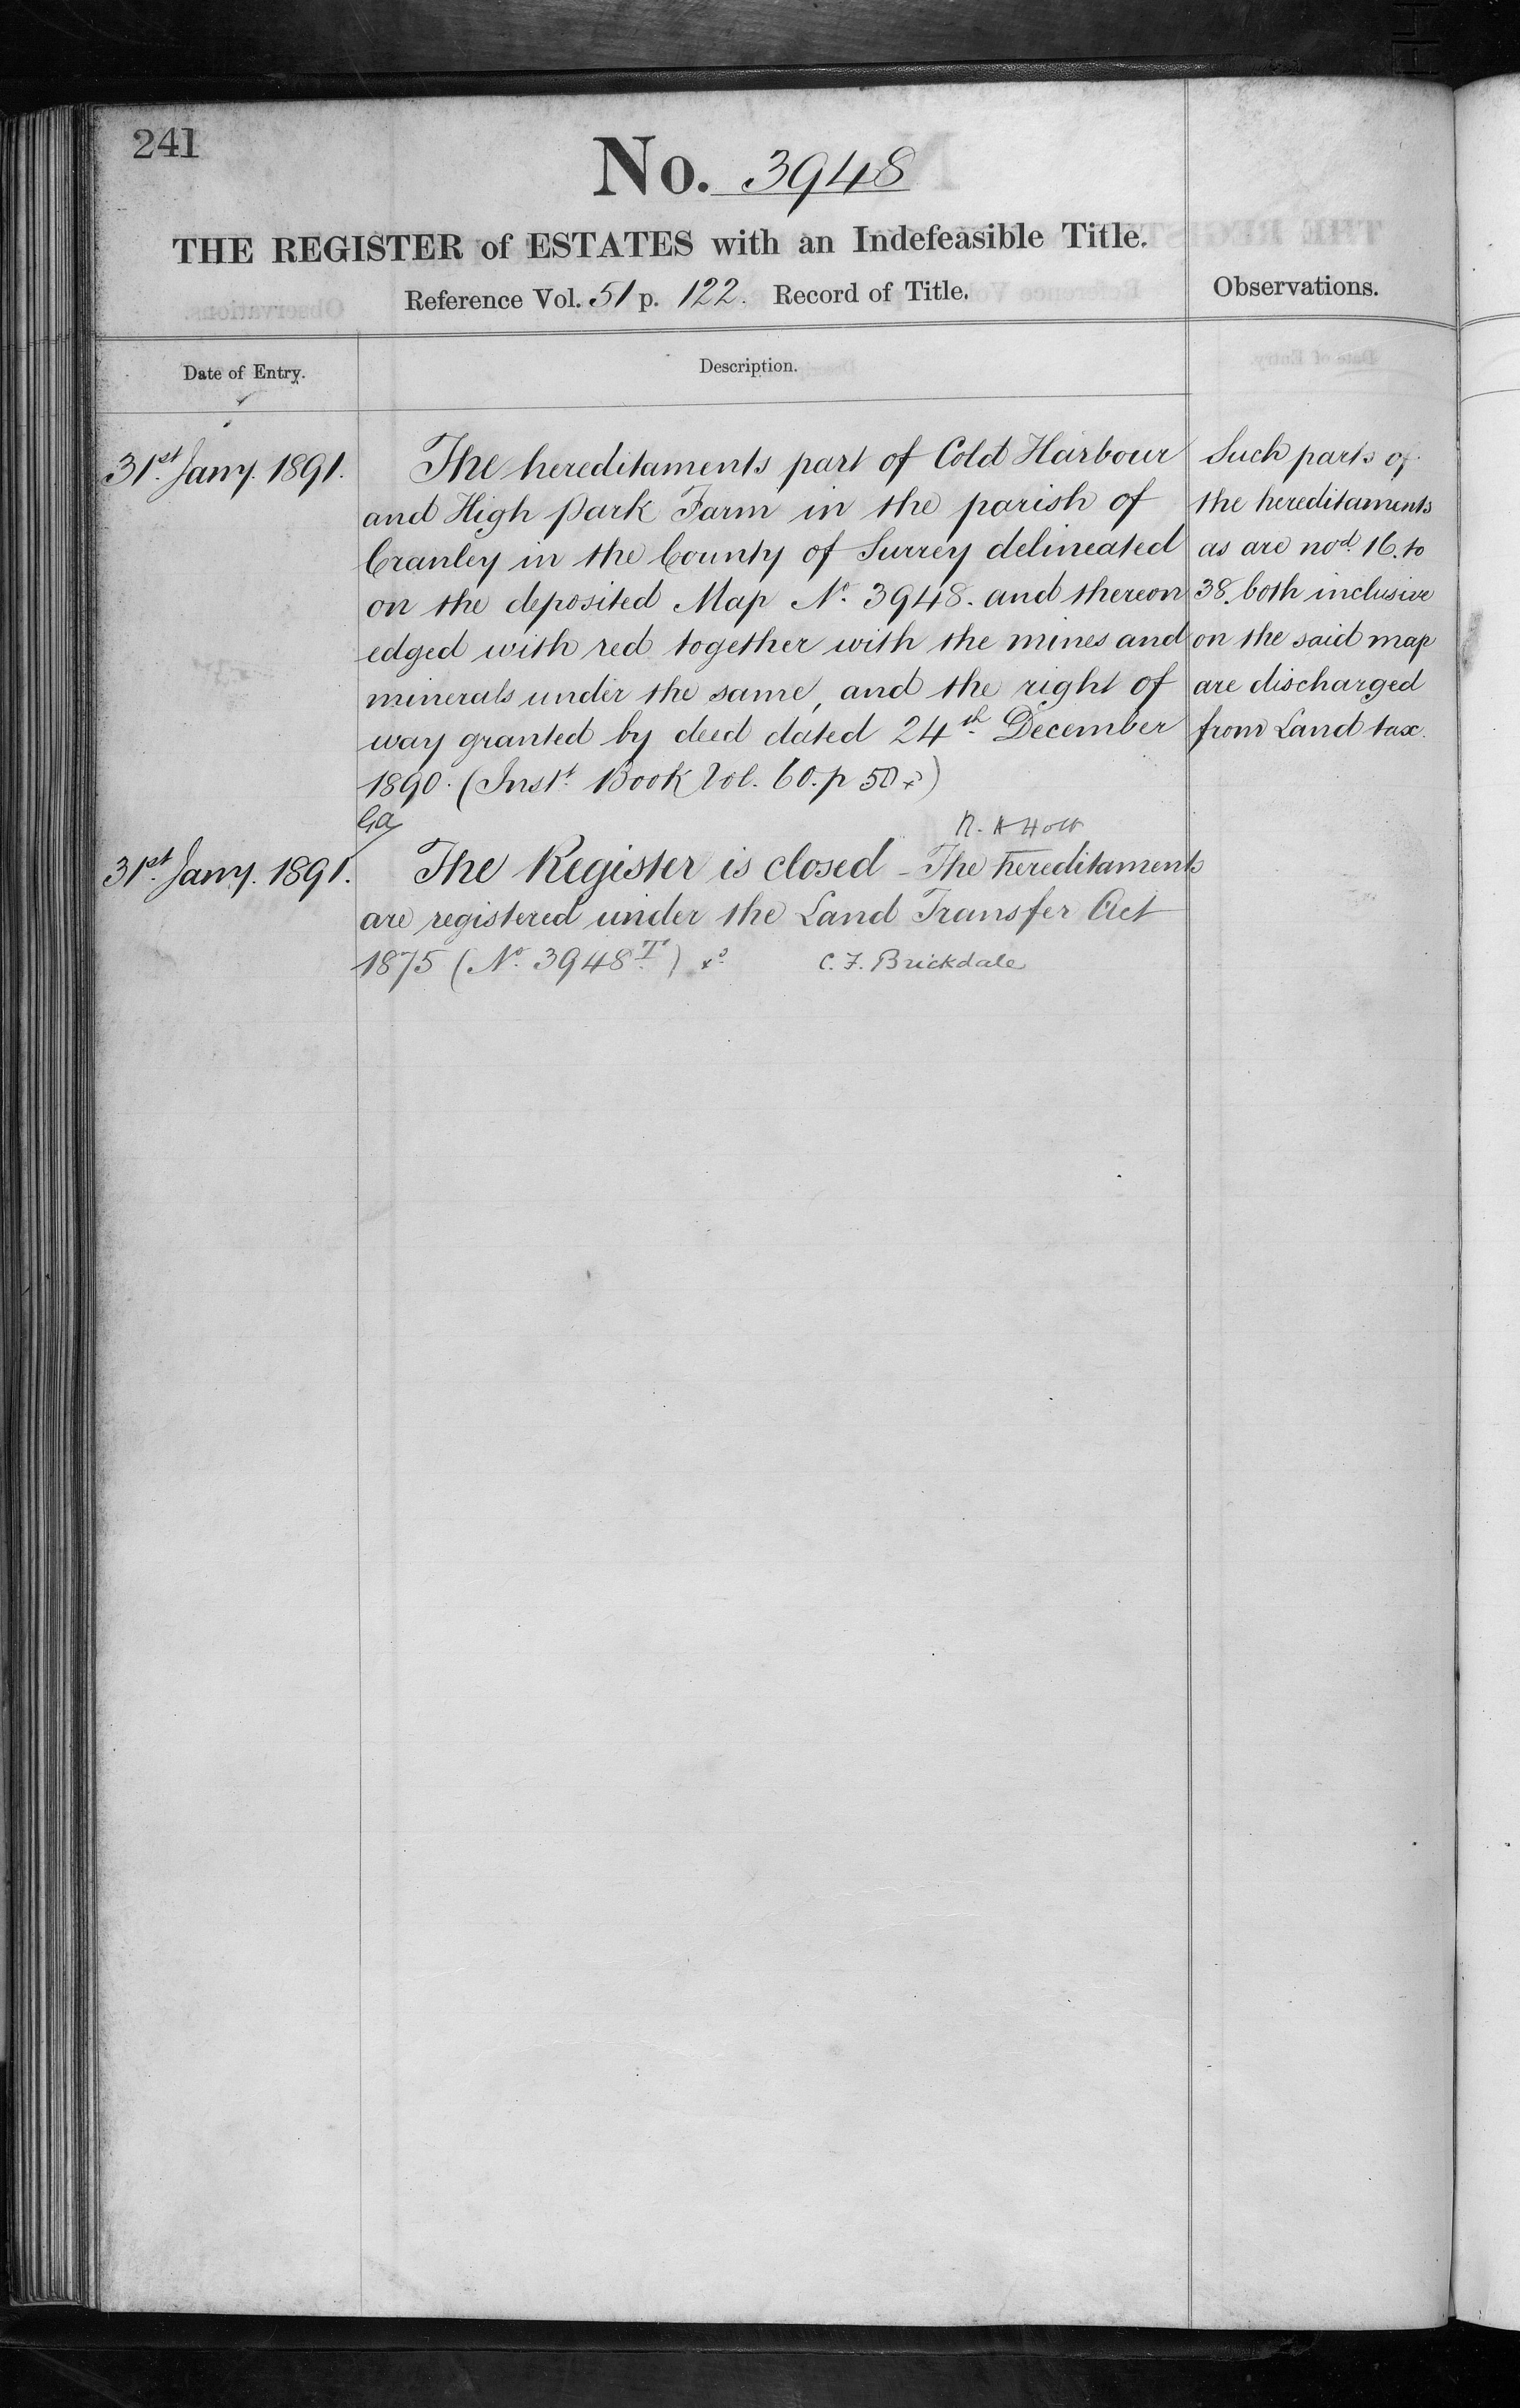 241
No. 3948
THE REGISTER of ESTATES with an Indefeasible Title.
Reference Vol. 51 p. 122. Record of Title.
Observations.
Date of Entry.
Description.
31st Jany. 1891.
The hereditaments part of Cold Harbour
and High Park Farm in the parish of
Cranley in the County of Surrey delineated
on the deposited Map No. 3948. and thereon
edged with red together with the mines and
minerals under the same, and the right of
way granted by deed dated 24th December
1890. (Inst. Book Vol. 60. p 50
Such parts of
the hereditaments
as are nod. 16. to
38. both inclusive
on the said map
are discharged
from Land tax.
31st Jany. 1891.
The Register is closed - The hereditaments
are registered under the Land Transfer Act
1875 (No. 3948T.)
C. F. Brickdale